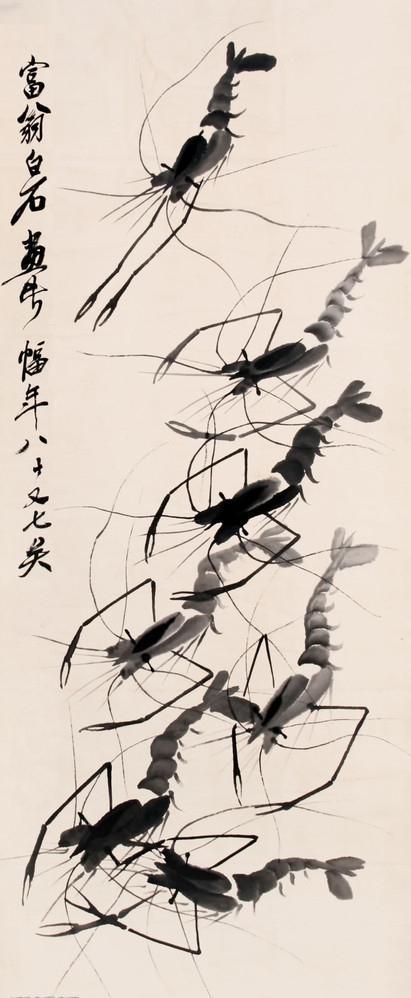 富翁白石畫此幅年八十又七矣